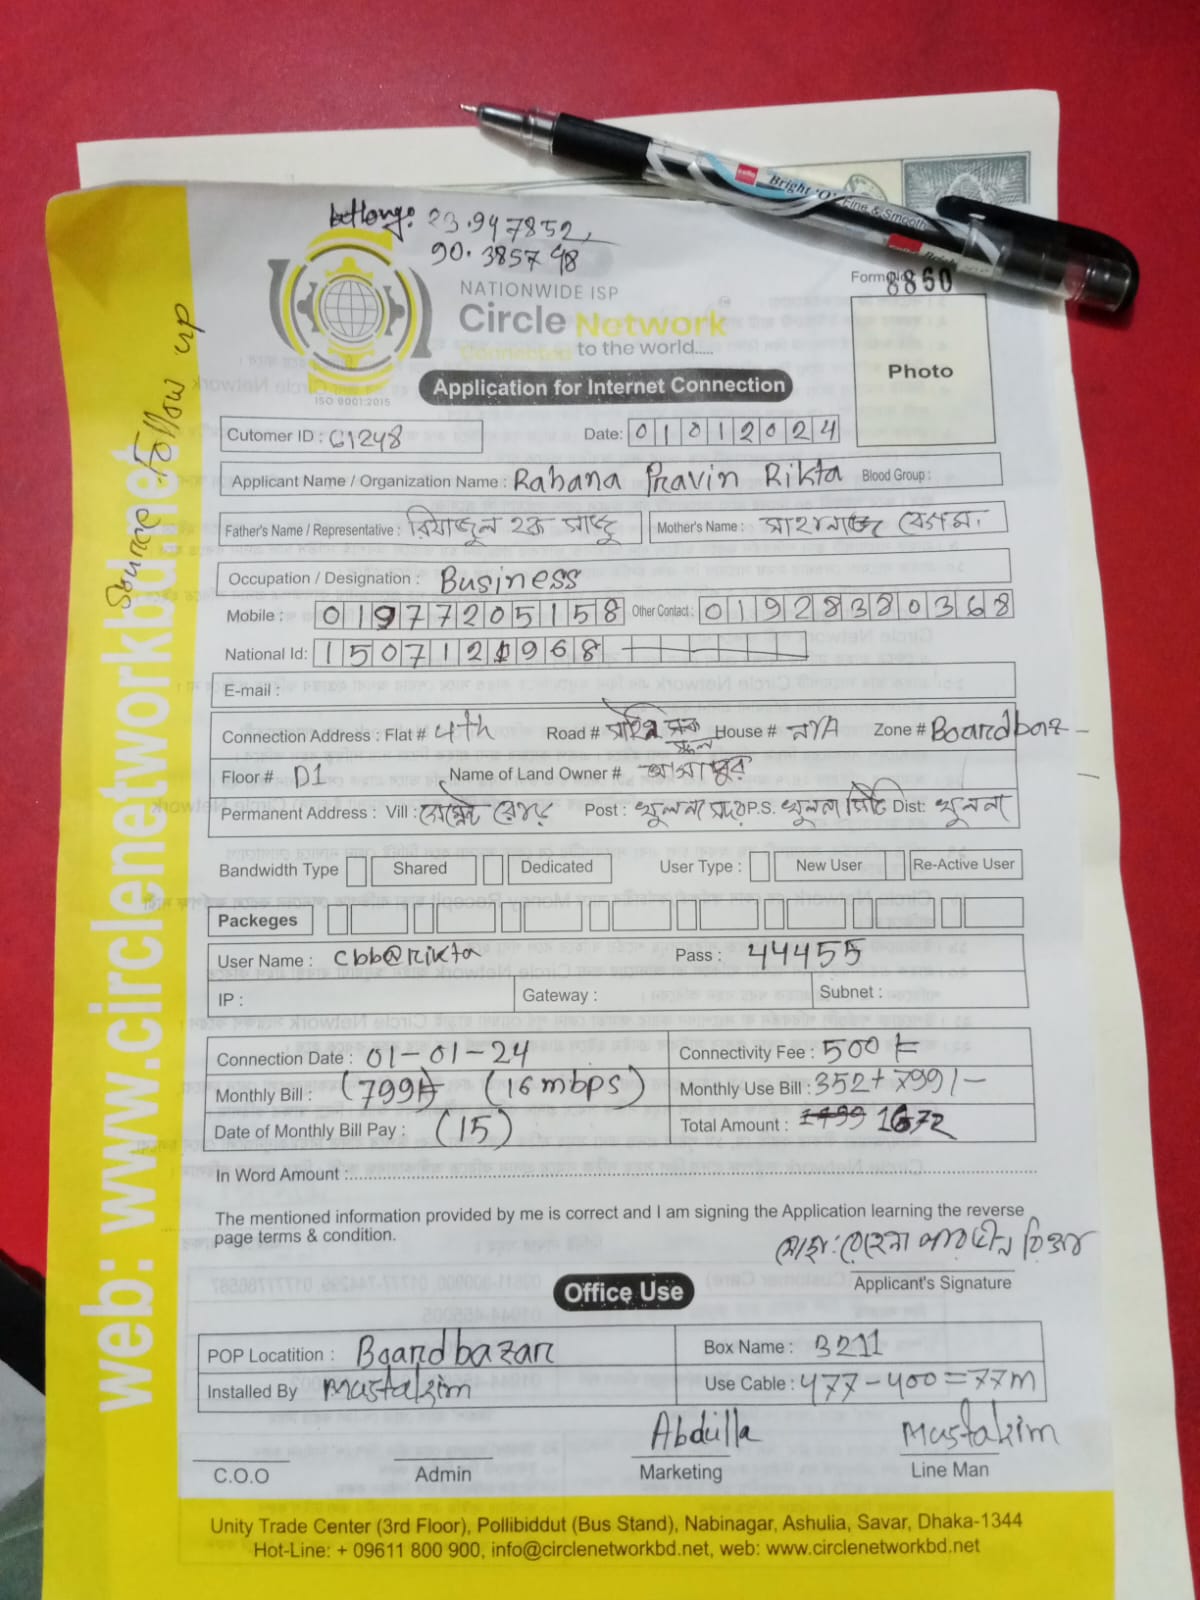 23.947852,
90.385748
NATIONWIDE ISP
Form No. 8860
Circle Network
Connected to the world.....
ISO 9001:2015
Photo
Application for Internet Connection
Source Follow up
web: www.circlenetworkbd.net
Cutomer ID : 61248 Date: 01012024
Applicant Name / Organization Name : Rahana Pravin Rikta Blood Group :
Father's Name / Representative : রিয়াজুল হক সাজু Mother's Name : সাহনাজ বেগম.
Occupation / Designation : Business
Mobile : 01977205158 Other Contact : 01928380368
National Id: 1507121968
E-mail :
Connection Address : Flat # 4th Road # House # N/A Zone # Boardbaz
Floor # D1 Name of Land Owner #
Permanent Address : Vill : Post : খুলনা সদর P.S. খুলনা সিটি Dist: খুলনা
Bandwidth Type Shared Dedicated User Type : New User Re-Active User
Packeges
User Name : cbb@rikta Pass : 44455
IP : Gateway : Subnet :
Connection Date : 01-01-24 Connectivity Fee : 500/=
Monthly Bill : (799/=) (16 mbps) Monthly Use Bill : 352+799/-
Date of Monthly Bill Pay : (15) Total Amount : 1499 1672
In Word Amount :
The mentioned information provided by me is correct and I am signing the Application learning the reverse
page terms & condition.
Applicant's Signature
Office Use
POP Locatition : Boardbazar Box Name : B211
Installed By Mustakim Use Cable : 477-400=77m
Abdulla Mustakim
C.O.O Admin Marketing Line Man
Unity Trade Center (3rd Floor), Pollibiddut (Bus Stand), Nabinagar, Ashulia, Savar, Dhaka-1344
Hot-Line: + 09611 800 900, info@circlenetworkbd.net, web: www.circlenetworkbd.net
cello Bright 'O' Fine & Smooth